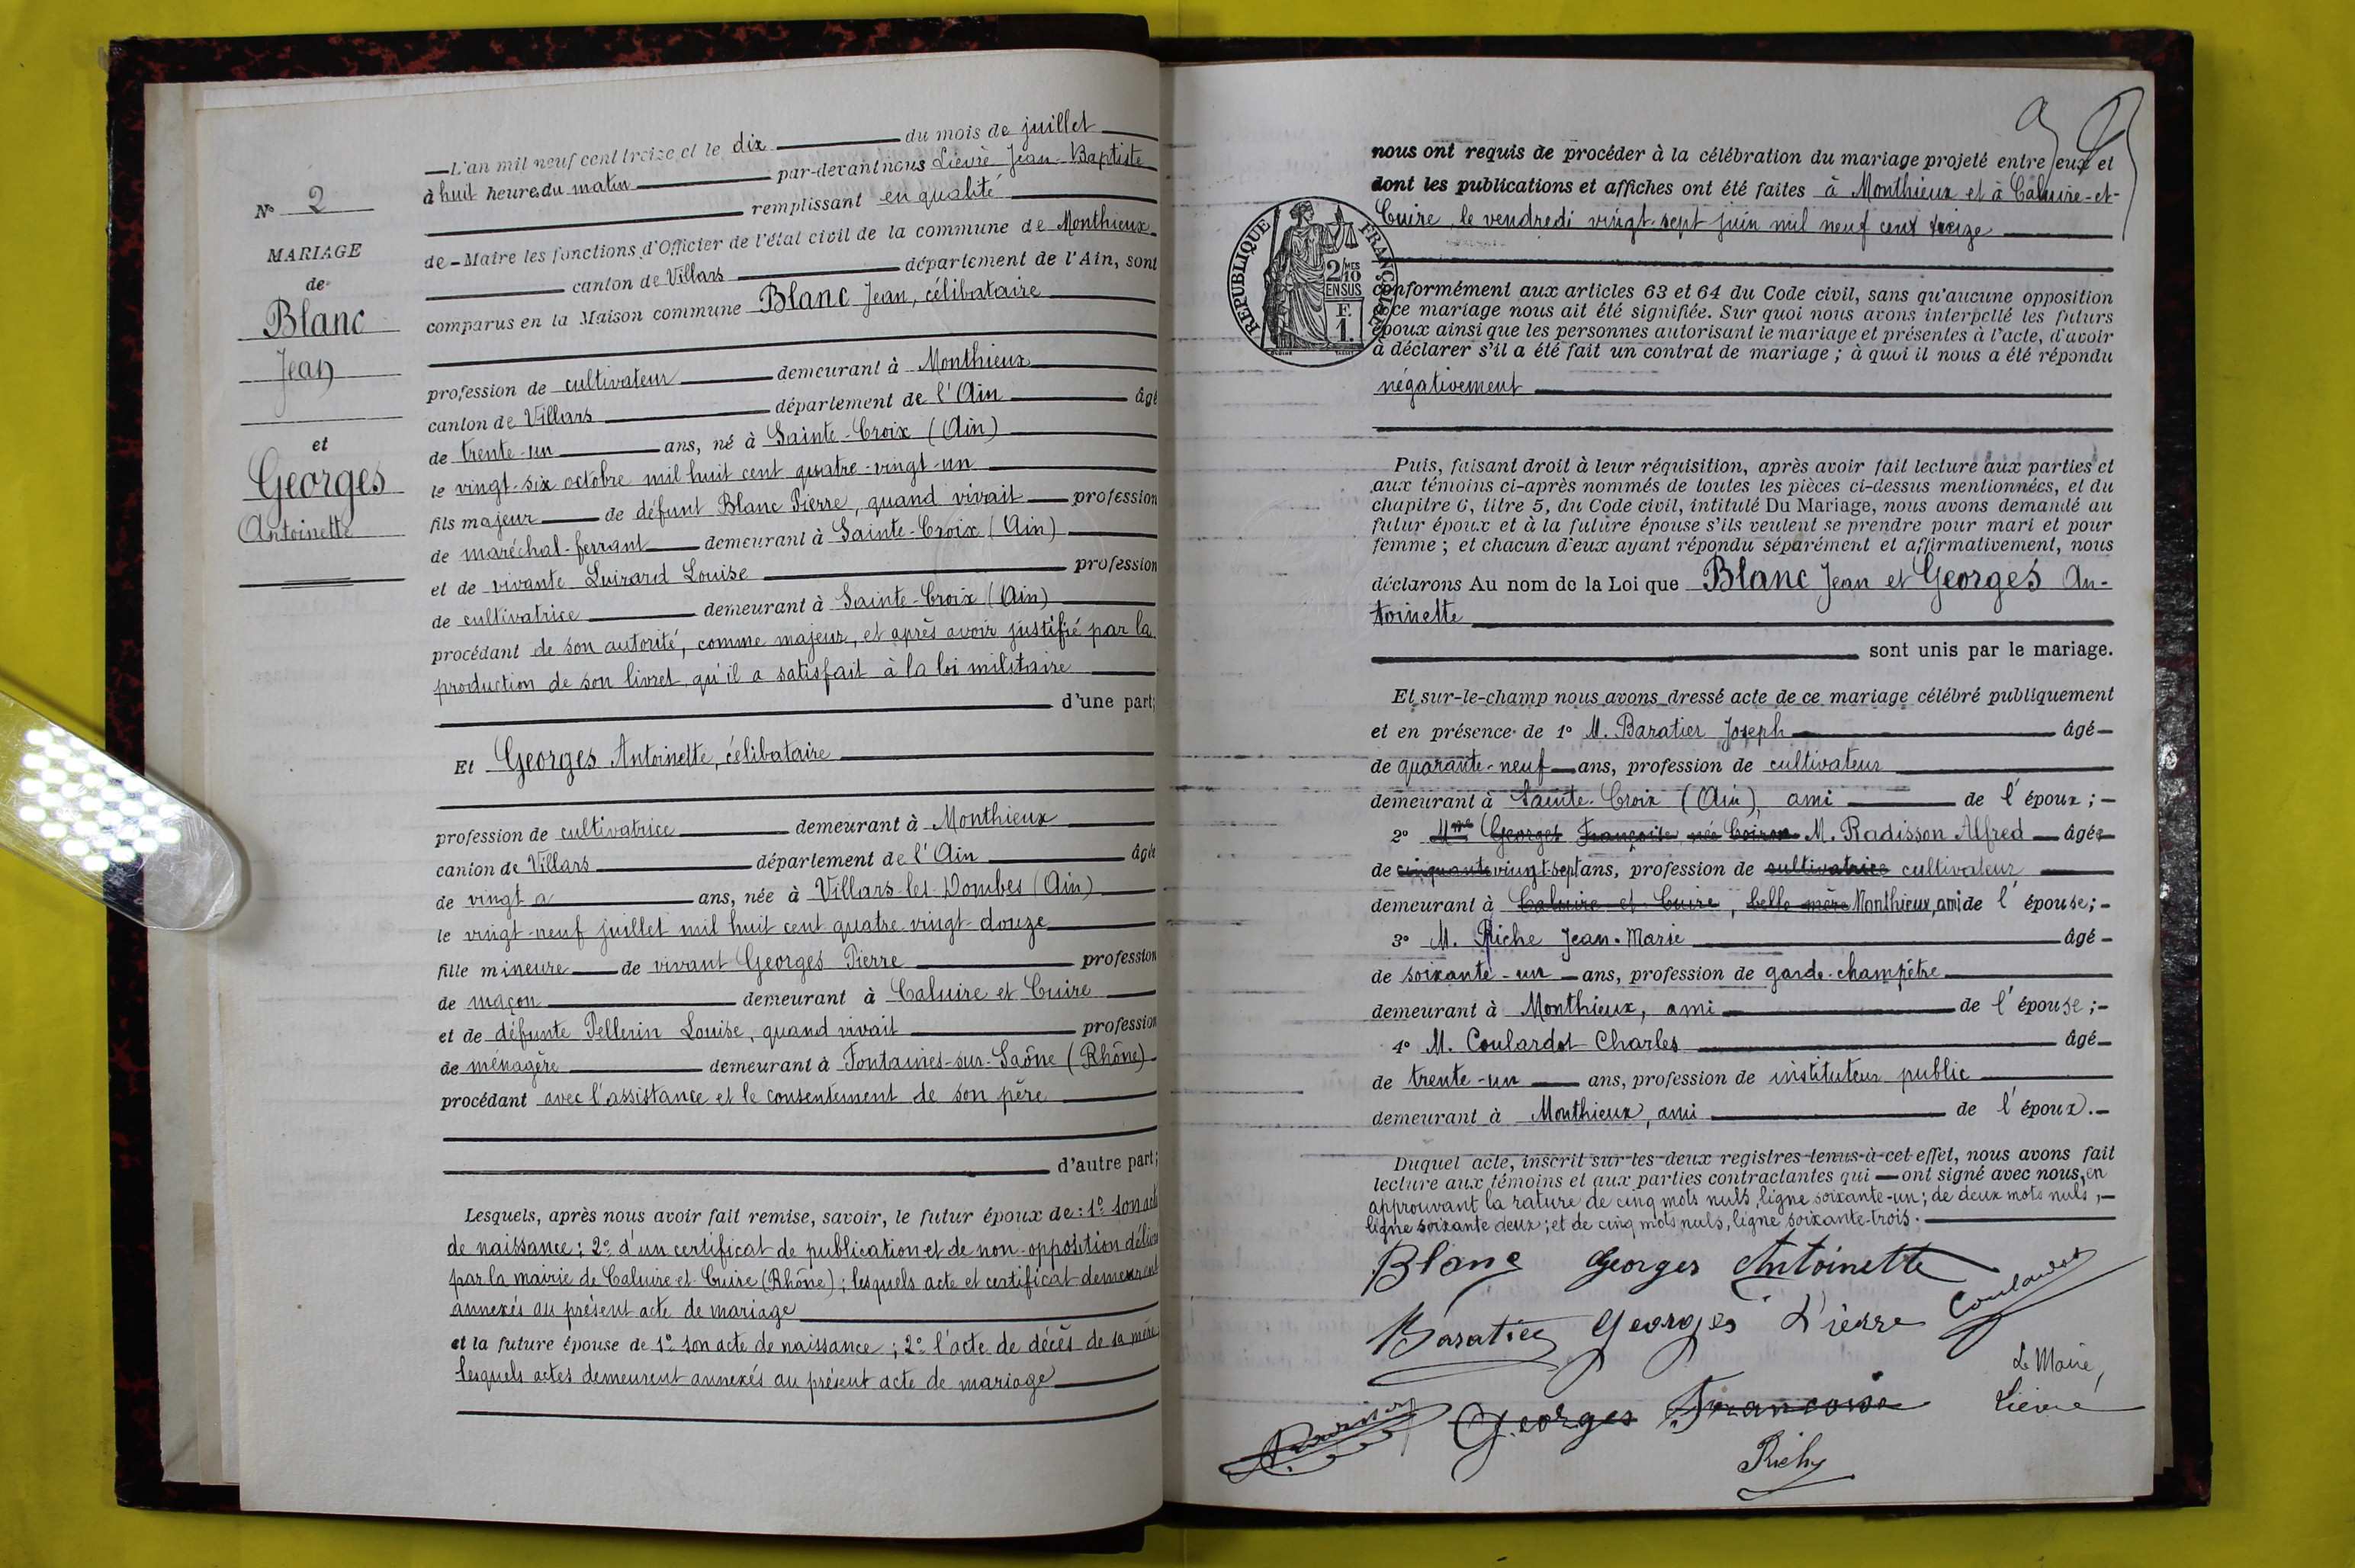 N° 2
MARIAGE
de
Blanc
Jean
et
Georges
Antoinette
L'an mil neuf cent treize et le dix du mois de juillet
à huit heure du matin par-devant nous Lièvre Jean-Baptiste
remplissant en qualité
de Maire les fonctions d'Officier de l'état civil de la commune de Monthieux
canton de Villars département de l'Ain, sont
comparus en la Maison commune Blanc Jean, célibataire
profession de cultivateur demeurant à Monthieux
canton de Villars département de l'Ain âgé
de trente-un ans, né à Sainte-Croix (Ain)
le vingt-six octobre mil huit cent quatre-vingt-un
fils majeur de défunt Blanc Pierre, quand vivait profession
de maréchal-ferrant demeurant à Sainte-Croix (Ain)
et de vivante Luirard Louise profession
de cultivatrice demeurant à Sainte-Croix (Ain)
procédant de son autorité, comme majeur, et après avoir justifié par la
production de son livret, qu'il a satisfait à la loi militaire
d'une part;
Et Georges Antoinette, célibataire
profession de cultivatrice demeurant à Monthieux
canton de Villars département de l'Ain âgée
de vingt a ans, née à Villars-les-Dombes (Ain)
le vingt-neuf juillet mil huit cent quatre-vingt-douze
fille mineure de vivant Georges Pierre profession
de maçon demeurant à Caluire et Cuire
et de défunte Pellerin Louise, quand vivait profession
de ménagère demeurant à Fontaines-sur-Saône (Rhône)
procédant avec l'assistance et le consentement de son père
d'autre part;
Lesquels, après nous avoir fait remise, savoir, le futur époux de : 1° son acte
de naissance ; 2° d'un certificat de publication et de non-opposition délivré
par la mairie de Caluire et Cuire (Rhône) ; lesquels acte et certificat demeurent
annexés au présent acte de mariage
et la future épouse de 1° son acte de naissance ; 2° l'acte de décès de sa mère
lesquels actes demeurent annexés au présent acte de mariage
nous ont requis de procéder à la célébration du mariage projeté entre eux et
dont les publications et affiches ont été faites à Monthieux et à Caluire-et-
Cuire, le vendredi vingt-sept juin mil neuf cent treize
RÉPUBLIQUE FRANÇAISE
2/10 MES
EN SUS
F.
1.
conformément aux articles 63 et 64 du Code civil, sans qu'aucune opposition
à ce mariage nous ait été signifiée. Sur quoi nous avons interpellé les futurs
époux ainsi que les personnes autorisant le mariage et présentes à l'acte, d'avoir
à déclarer s'il a été fait un contrat de mariage ; à quoi il nous a été répondu
négativement
Puis, faisant droit à leur réquisition, après avoir fait lecture aux parties et
aux témoins ci-après nommés de toutes les pièces ci-dessus mentionnées, et du
chapitre 6, titre 5, du Code civil, intitulé Du Mariage, nous avons demandé au
futur époux et à la future épouse s'ils veulent se prendre pour mari et pour
femme ; et chacun d'eux ayant répondu séparément et affirmativement, nous
déclarons Au nom de la Loi que Blanc Jean et Georges An-
toinette
sont unis par le mariage.
Et sur-le-champ nous avons dressé acte de ce mariage célébré publiquement
et en présence de 1° M. Baratier Joseph âgé
de quarante-neuf ans, profession de cultivateur
demeurant à Sainte-Croix (Ain), ami de l'époux ;
2° Mme Georges Françoise née Coiron M. Radisson Alfred âgés
de cinquante vingt-sept ans, profession de cultivatrice cultivateur
demeurant à Caluire et Cuire, belle-mère Monthieux, ami de l'épouse ;
3° M. Riche Jean-Marie âgé
de soixante-un ans, profession de garde-champêtre
demeurant à Monthieux, ami de l'épouse ;
4° M. Coulardot Charles âgé
de trente-un ans, profession de instituteur public
demeurant à Monthieux, ami de l'époux.
Duquel acte, inscrit sur les deux registres tenus à cet effet, nous avons fait
lecture aux témoins et aux parties contractantes qui ont signé avec nous, en
approuvant la rature de cinq mots nuls, ligne soixante-un ; de deux mots nuls,
ligne soixante deux ; et de cinq mots nuls, ligne soixante-trois.
Blanc Georges Antoinette
Coulardot
Baratier Georges Pierre
Le Maire,
Lièvre
Georges Francoise
Riche